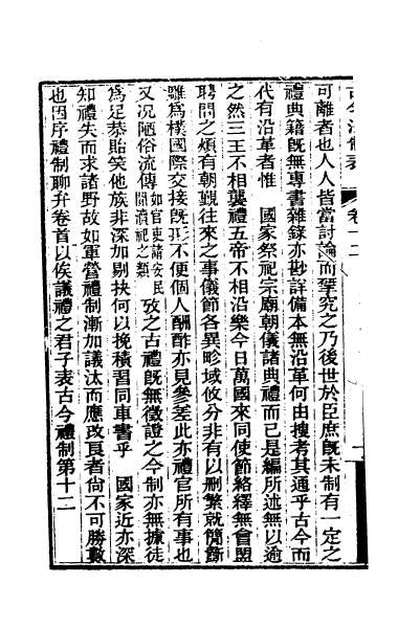 可離者也人人皆當討論而擘究之乃後世於臣庶旣未制有一定之
禮典籍旣無專書雜錄亦尠詳備本無沿革何由搜考其通乎古今而
代有沿革者惟　國家祭祀宗廟朝儀諸典禮而已是編所述無以逾
之然三王不相襲禮五帝不相沿樂今日萬國來同使節絡繹無會盟
聘問之煩有朝覲往來之事儀節各異畛域攸分非有以刪繁就簡節
雕爲樸國際交接旣不便個人酬酢亦見參差此亦禮官所有事也
又況陋俗流傳如官吏諸安民間瀆祀之類攷之古禮旣無徵證之今制亦無據徒
爲足恭貽笑他族非深加剔抉何以挽積習同車書乎　國家近亦深
知禮失而求諸野故如軍營禮制漸加議汰而應改良者尙不可勝數
也因序禮制聊弁卷首以俟議禮之君子表古今禮制第十二
古今法制表　卷十二